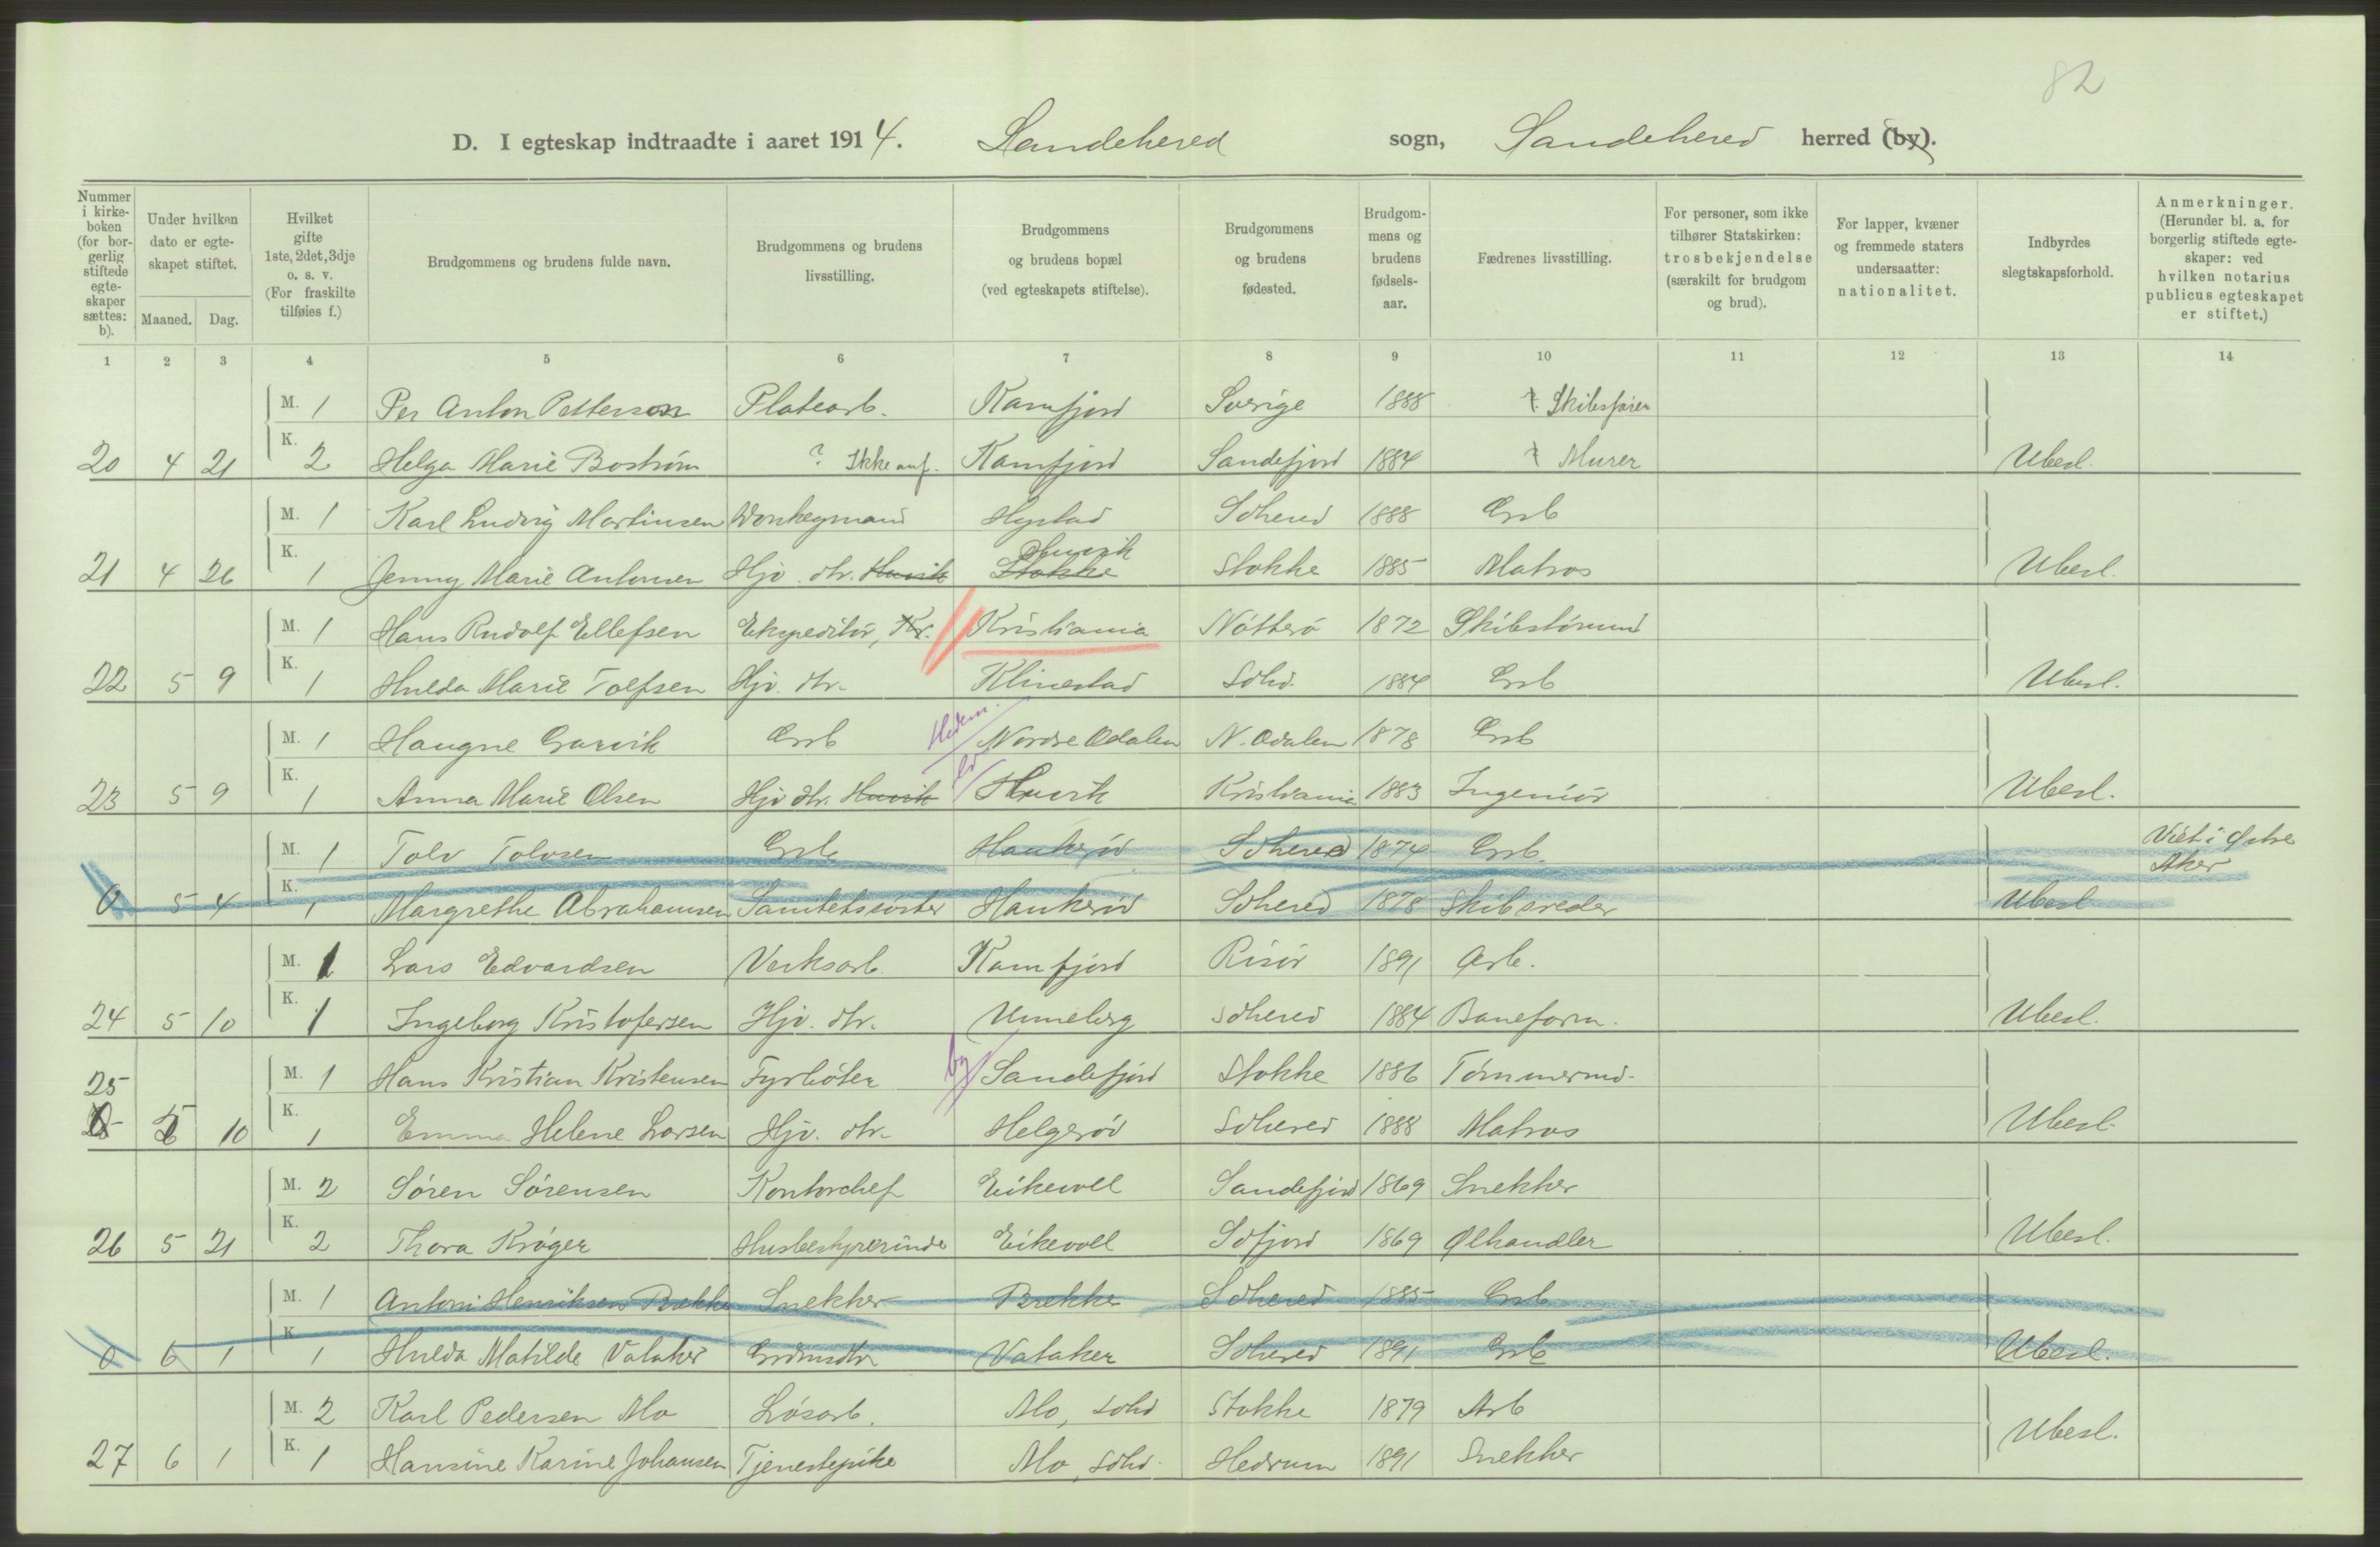 82
D. I egteskap indtraadte i aaret 1914. Sandehered sogn, Sandehered herred (by).
Nummer i kirkeboken (for borgerlig stiftede egteskaper sættes: b).
Under hvilken dato er egteskapet stiftet.
Maaned. Dag.
Hvilket gifte 1ste, 2det, 3dje o. s. v. (For fraskilte tilføies f.)
Brudgommens og brudens fulde navn.
Brudgommens og brudens livsstilling.
Brudgommens og brudens bopæl (ved egteskapets stiftelse).
Brudgommens og brudens fødested.
Brudgommens og brudens fødselsaar.
Fædrenes livsstilling.
For personer, som ikke tilhører Statskirken: trosbekjendelse (særskilt for brudgom og brud).
For lapper, kvæner og fremmede staters undersaatter: nationalitet.
Indbyrdes slegtskapsforhold.
Anmerkninger. (Herunder bl. a. for borgerlig stiftede egteskaper: ved hvilken notarius publicus egteskapet er stiftet.)
1 2 3 4 5 6 7 8 9 10 11 12 13 14
M. 1 Per Anton Petterson Platearb. Kamfjord Sverige 1888 Skibsfører
20 4 21 K. 2 Helga Marie Boström ? Ikke anf. Kamfjord Sandefjord 1884 Murer Ubesl.
M. 1 Karl Ludvig Martinsen Verksgmand Hystad Sdhered 1888 Grb
21 4 26 K. 1 Jenny Marie Antonsen Hjv. dtr. Huvik Stokke Huvik Stokke 1885 Matros Ubesl.
M. 1 Hans Rudolf Ellefsen Ekspeditör, Kr. Kristiania Nötterö 1872 Skibstömmd
22 5 9 K. 1 Hulda Marie Tolfsen Hjv. dtr. Klinestad Sdhd. 1884 Grb Ubesl.
Hedm.
M. 1 Haugne Garvik Grb Nordre Odalen N. Odalen 1878 Grb
23 5 9 K. 1 Anna Marie Olsen Hjv dtr. Huvik Huvik Kristiania 1883 Ingeniör Ubesl.
M. 1 Tolv Tolvsen Grb Haukeröd Sdhered 1874 Grb. Viet i Østre Aker
0 5 4 K. 1 Margrethe Abrahamsen Sanitetssöster Haukeröd Sdhered 1878 Skibsreder Ubesl
M. 1 Lars Edvardsen Verksarb. Kamfjord Risör 1891 Arb.
24 5 10 K. 1 Ingeborg Kristofersen Hjv. dtr. Unneberg Sdhered 1884 Baneform. Ubesl.
25 M. 1 Hans Kristian Kristensen Fyrböter by Sandefjord Stokke 1886 Tömmermd.
5 10 K. 1 Emma Helene Larsen Hjv. dtr. Helgeröd Sdhered 1888 Matros Ubesl.
M. 2 Sören Sörensen Kontorchef Eikevoll Sandefjord 1869 Snekker
26 5 21 K. 2 Thora Kröger Husbestyrerinde Eikevoll Sdfjord 1869 Ølhandler Ubesl.
M. 1 Anton Henriksen Brekke Snekker Brekke Sdhered 1885 Grb
0 6 1 K. 1 Hulda Matilde Valaker Grdmdtr Vataker Sdhered 1891 Grb Ubesl.
M. 2 Karl Pedersen Mo Lösarb. Mo, Sdhd Stokke 1879 Arb
27 6 1 K. 1 Hansine Karine Johansen Tjenestepike Mo, Sdhd. Hedrum 1891 Snekker Ubesl.